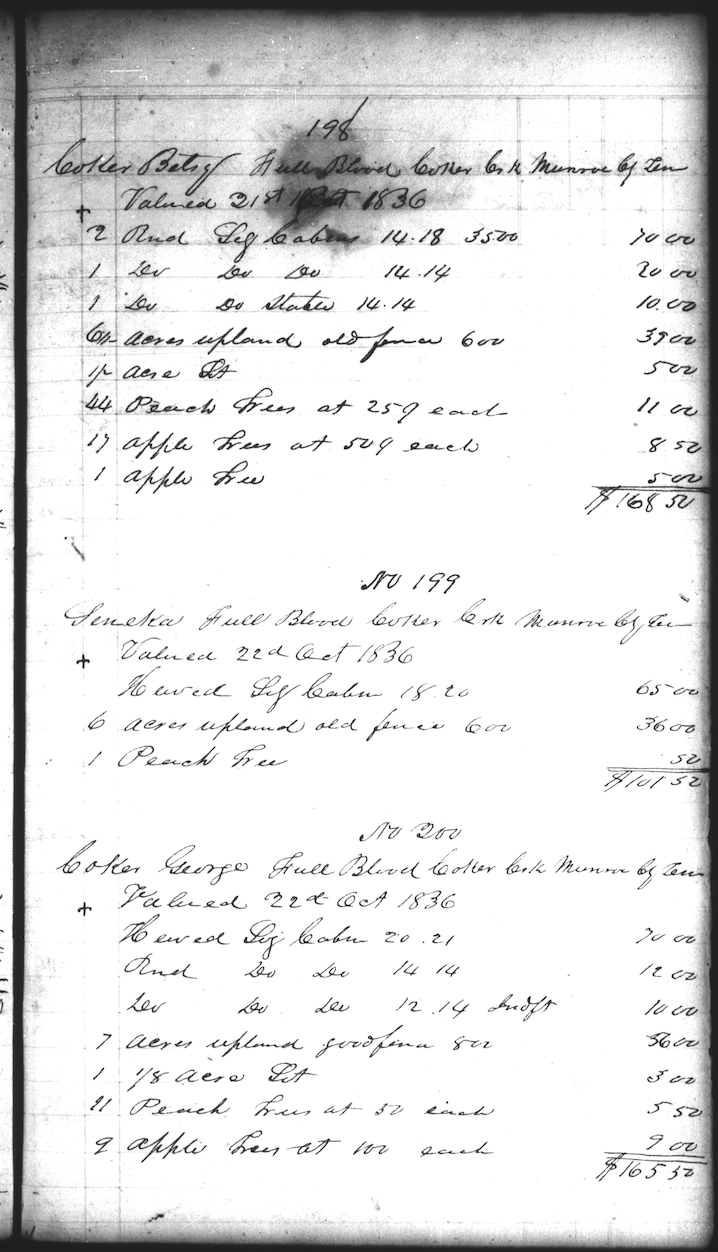 198
Coker Betsy Full Blood Coker Crk Munroe Cy Ten
+ Valued 21st Oct 1836
2 Rnd Log Cabins 14.18 3500 70 00
1 Do Do Do 14.14 20 00
1 Do Do Stable 14.14 10.00
6½ acres upland old fence 600 39 00
½ acre Lot 5 00
44 Peach Trees at 25¢ each 11 00
17 apple Trees at 50¢ each 8 50
1 apple Tree 5 00
$168 50
No 199
Seneka Full Blood Coker Crk Munroe Cy Ten
+ Valued 22d Oct 1836
Hewed Log Cabin 18.20 65 00
6 acres upland old fence 600 36 00
1 Peach Tree 50
$101 50
No 200
Coker George Full Blood Coker Crk Munroe Cy Ten
+ Valued 22d Oct 1836
Hewed Log Cabin 20.21 70 00
Rnd Do Do 14 14 12 00
Do Do Do 12.14 10 00
7 acres upland good fence 800 56 00
1 1/8 Acre Lot 3 00
11 Peach Trees at 50 each 5 50
9 apple Trees at 100 each 9 00
$165 50